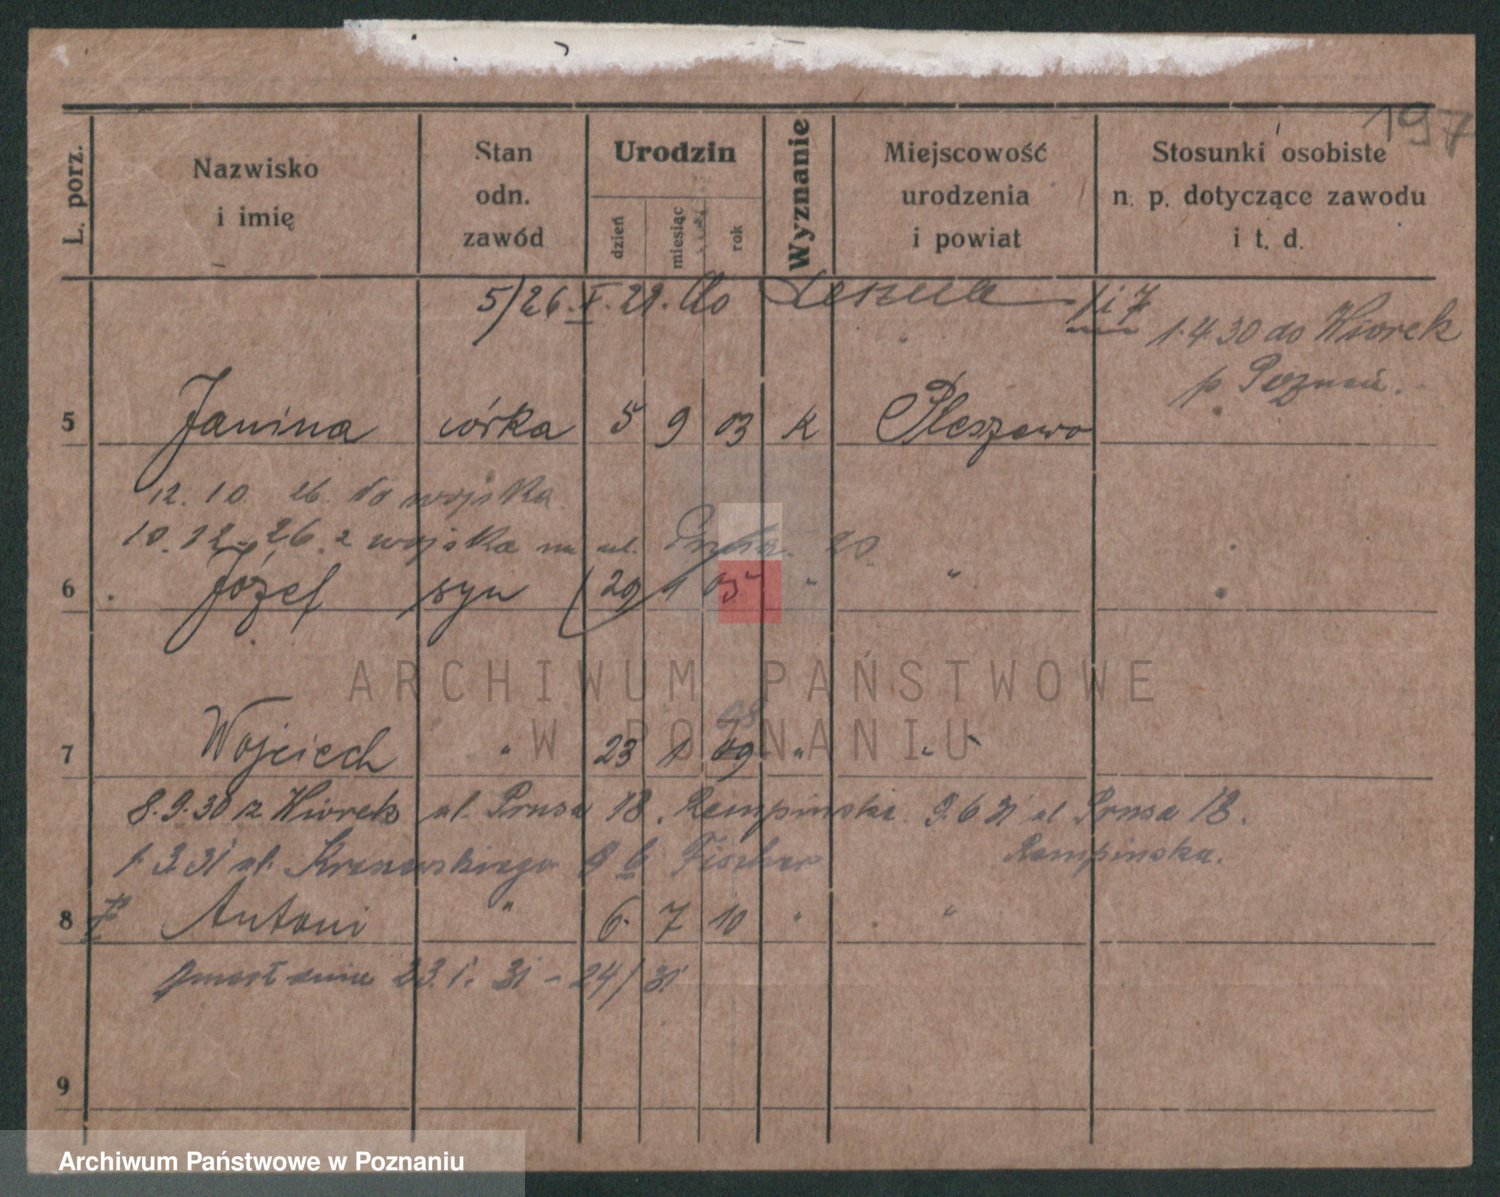 197
L. porz. Nazwisko i imię Stan odn. zawód Urodzin dzień miesiąc rok Wyznanie Miejscowość urodzenia i powiat Stosunki osobiste n. p. dotyczące zawodu i t. d.
5/26.X.21. do
1.4.30 do Wiorek
p. Poznań.
5 Janina córka 5 9 03 k Pleszewo
12. 10. 26. do wojska
10. 12. 26. z wojska na ul. 20.
6 Józef syn 29 1 " "
7 Wojciech " 23 1 09 " "
8.9.30 z Wiorek ul. Prusa 18. Rempinski. 9.6 31 ul Prusa 18.
1.3.31 ul. Kraszewskiego 9 b Fischer Rempinska.
8 Antoni " 6. 7 10 " "
zmarł dnia 23.1.31 - 24/31
9
ARCHIWUM PAŃSTWOWE
W POZNANIU
Archiwum Państwowe w Poznaniu